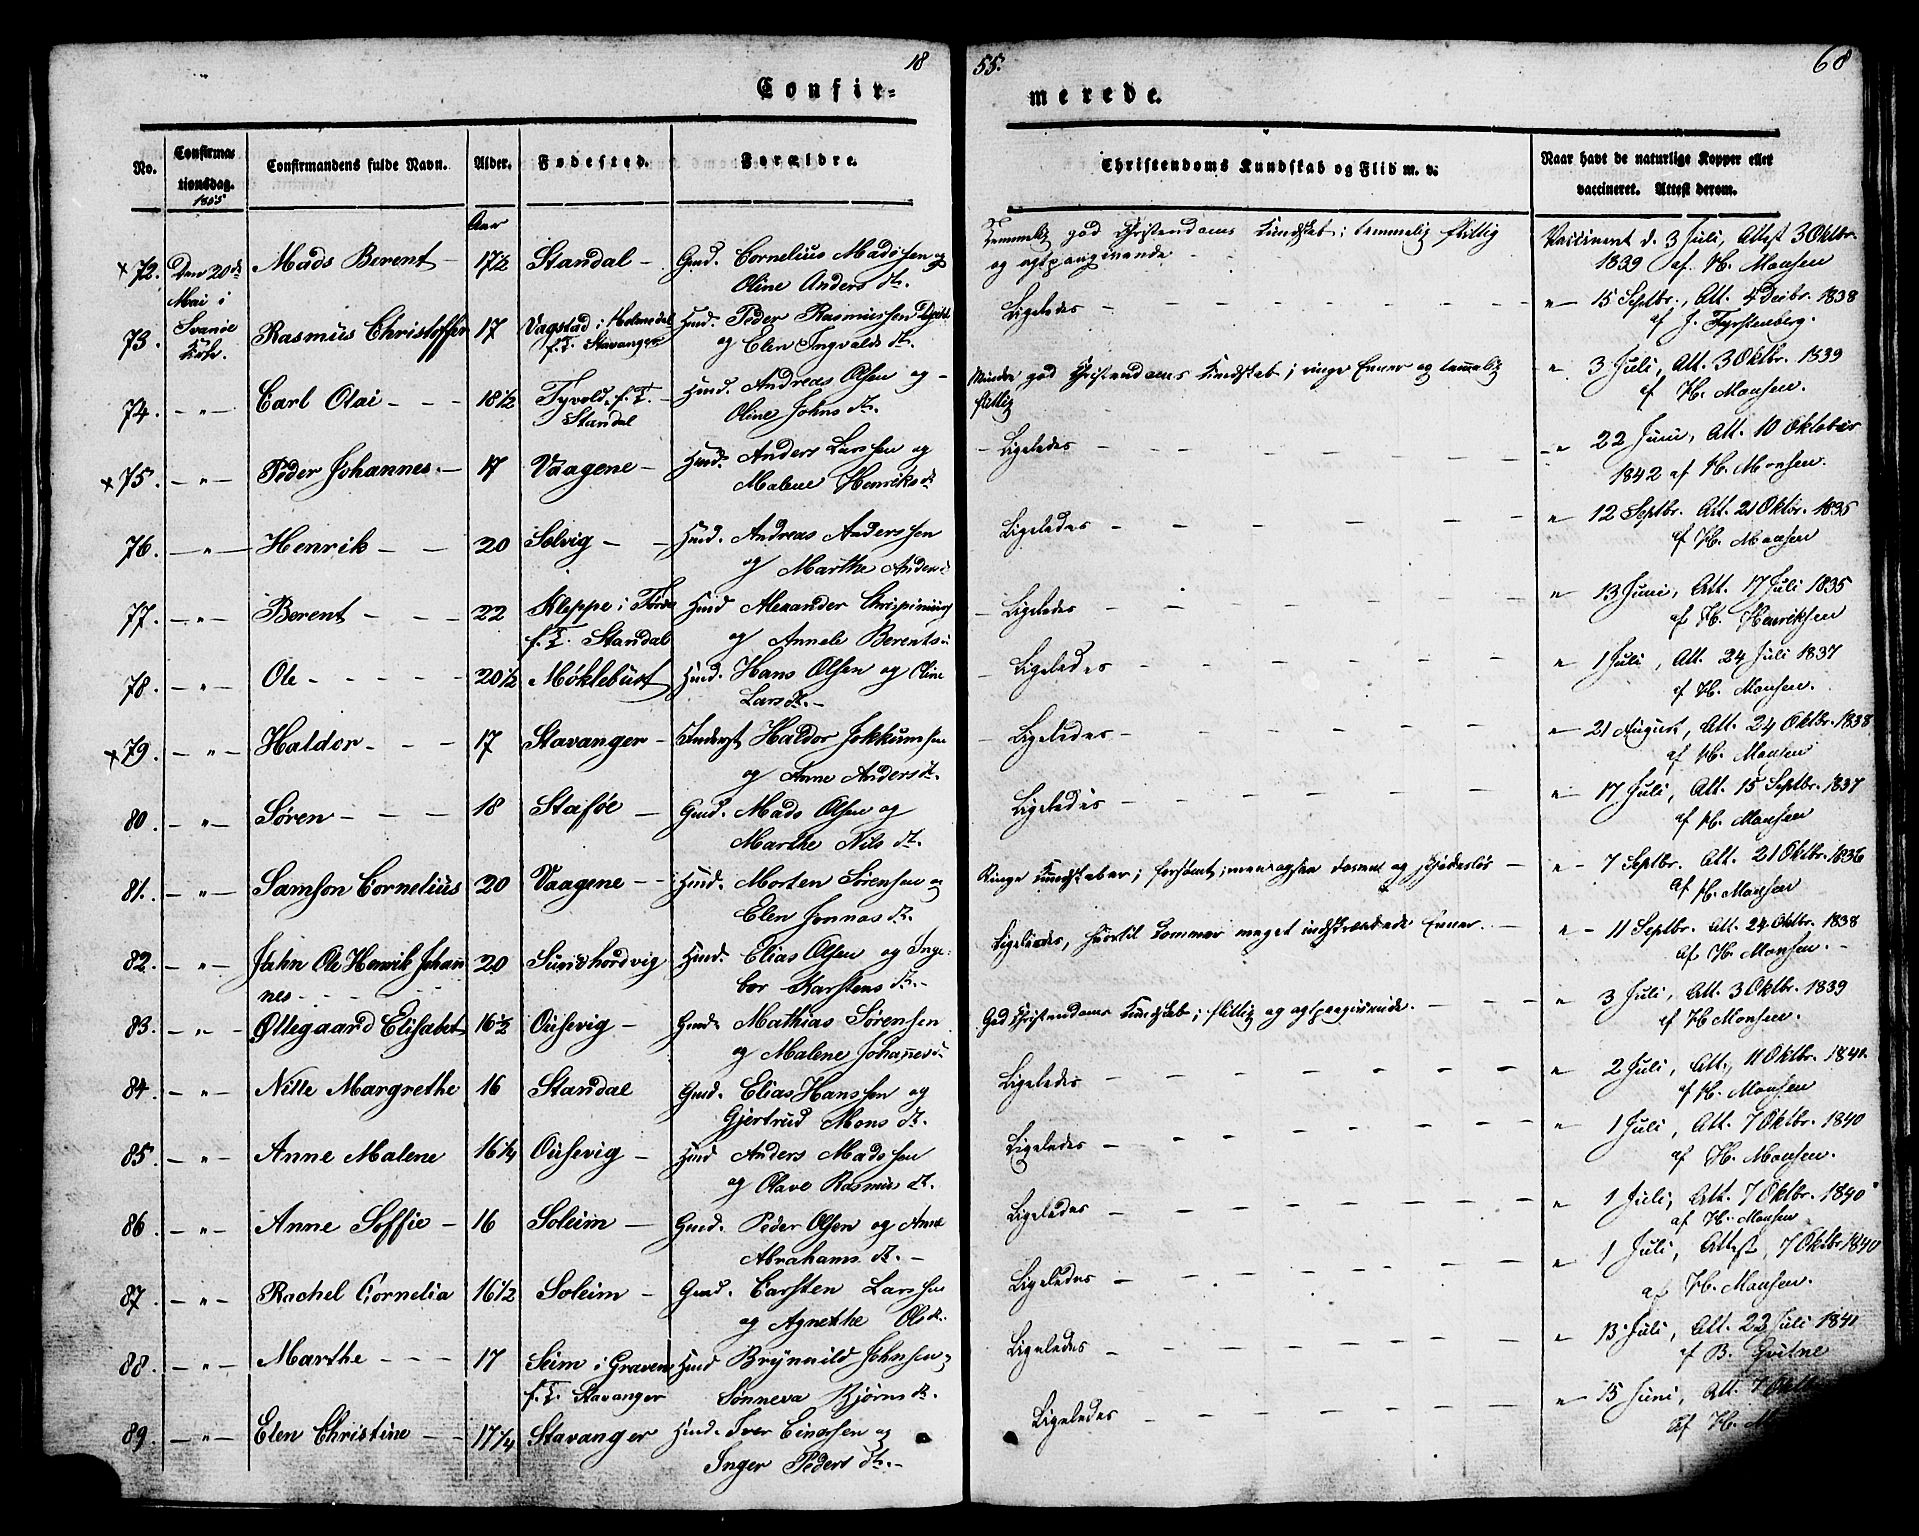 18
55.
68
Confir-
merede.
No.
Confirma-
tionsdag.
1855
Confirmandens fulde Navn.
Alder.
Fødested.
Forældre.
Christendoms Kundskab og Flid m. v.
Naar havt de naturlige Kopper eller
vaccineret. Attest derom.
Aar
72. Den 20de Mads Berent 17½ Standal Gmd. Cornelius Madssen og
Mai i
Oline Anders Dt.
Temmelig god Christendoms Kundskab; temmelig flittig
og agtpaagivende
Vaccineret d. 3 Juli, Attest 3 Oktbr.
1839 af H. Monsen
73. Svanøe Rasmus Christoffer 17 Vagstad i Holmedal Huusd. Peder Rasmussen
Kirke.
f. T. Stavanger og Elen Ingvalds Dt.
Ligeledes
" 15 Septbr., Att. 4 Decbr. 1838
af J. Fyrstenberg.
74. " Carl Olai 18½ Tyvold, f. T. Huusd. Andreas Olsen og
Standal Oline Johns Dt.
Mindre god Christendoms Kundskab; ringe Evner og temmelig
flittig
" 3 Juli, Att. 3 Oktbr. 1839
af H. Monsen.
75. " Peder Johannes 17 Vaagene Huusd. Anders Larssen og
Malene Henriks Dt.
Ligeledes
" 22 Juni, Att. 10 Oktober
1842 af H. Monsen.
76. " Henrik 20 Solvig Huusd. Andreas Anderssen
og Marthe Anders
Ligeledes
" 12 Septbr. Att. 21 Oktbr. 1835
af H. Monsen
77. " Berent 22 Kleppe i Førde Huusd Alexander
f. T. Standal og Annele Berents
Ligeledes
" 13 Juni, Att. 17 Juli 1835
af H. Henriksen
78. " Ole 20½ Møklebust Huusd. Hans Olsen og Oline
Lars Dt.
Ligeledes
" 1 Juli, Att. 24 Juli 1837
af H. Monsen.
79. " Haldor 17 Stavanger Inderst Haldor Jokkumsen
og Anne Anders Dt.
Ligeledes
" 21 August, Att. 24 Oktbr. 1838
af H. Monsen
80. " Søren 18 Staføe Gmd. Mads Olsen og
Marthe Nils Dt.
Ligeledes
" 17 Juli, Att. 15 Septbr. 1837
af H. Monsen
81. " Samson Cornelius 20 Vaagene Huusd. Morten Sørensen og
Elen Jonnas Dt.
Ringe Kundskaber; forsømt; men ogsaa doven og
" 7 Septbr. Att. 21 Oktbr. 1836
af H. Monsen
82. " John Ole Henrik Johan 20 Sundhordvig Huusd. Elias Olsen og Inge-
nes
bor Karstens Dt.
Ligeledes, hvortil kommer meget indskrænkede Evner.
" 11 Septbr. Att. 24 Oktbr. 1838
af H. Monsen.
83. " Ollegaard Elisabet 16½ Ousevig Gmd. Mathias Sørensen
og Malene Johannes Dt
God Christendoms Kundskab; flittig og agtpaagivende.
" 3 Juli, Att. 3 Oktbr. 1839
af H Monsen.
84. " Nille Margrethe 16 Standal Gmd. Elias Hanssen og
Gjertrud Mons Dt.
Ligeledes
" 2 Juli, Att. 11 Oktbr. 1841.
af H. Monsen
85. " Anne Malene 16¼ Ousevig Huusd Anders Madssen
og Olave Rasmus Dt.
Ligeledes
" 1 Juli, Att. 7 Oktbr. 1840
af H. Monsen.
86 " Anne Soffie 16 Soleim Gmd. Peder Olsen og Anne
Abrahams Dt.
Ligeledes
" 1 Juli, Att. 7 Oktbr. 1840
af H. Monsen
87. " Rachel Cornelia 16½ Soleim Gmd. Carsten Larssen
og Agnethe Ols Dt.
Ligeledes
" 1 Juli, Attest, 7 Oktbr 1840
af H. Monsen.
88. " Marthe 17 Seim i Graven Huusd Brynnild Johnsen
f. T. Stavanger Sønneva Bjørns Dt.
Ligeledes
" 13 Juli, Att. 23 Juli 1841
af B. Qvitne
89. " Elen Christine 17¼ Stavanger Huusd. Iver Einersen og
Inger Peders Dt.
Ligeledes
" 15 Juni, Att. 7 Oktbr
af H. M